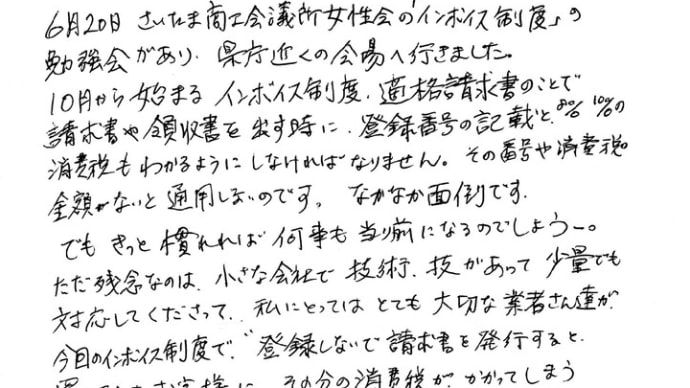 6月20日 さいたま商工会議所女性会の「インボイス制度」の
勉強会があり、県庁近くの会場へ行きました。
10月から始まる インボイス制度、適格請求書のことで
請求書や領収書を出す時に、登録番号の記載と、8% 10%の
消費税もわかるようにしなければなりません。その番号や消費税の
金額がないと通用しないのです。なかなか面倒です。
でも きっと慣れれば何事も当り前になるのでしょうー。
ただ残念なのは、小さな会社で技術、技があって少量でも
対応してくださって、私にとってはとても大切な業者さん達が、
今回のインボイス制度で、"登録しないで請求書を発行すると、
お客様に、その分の消費税がかかってしまう